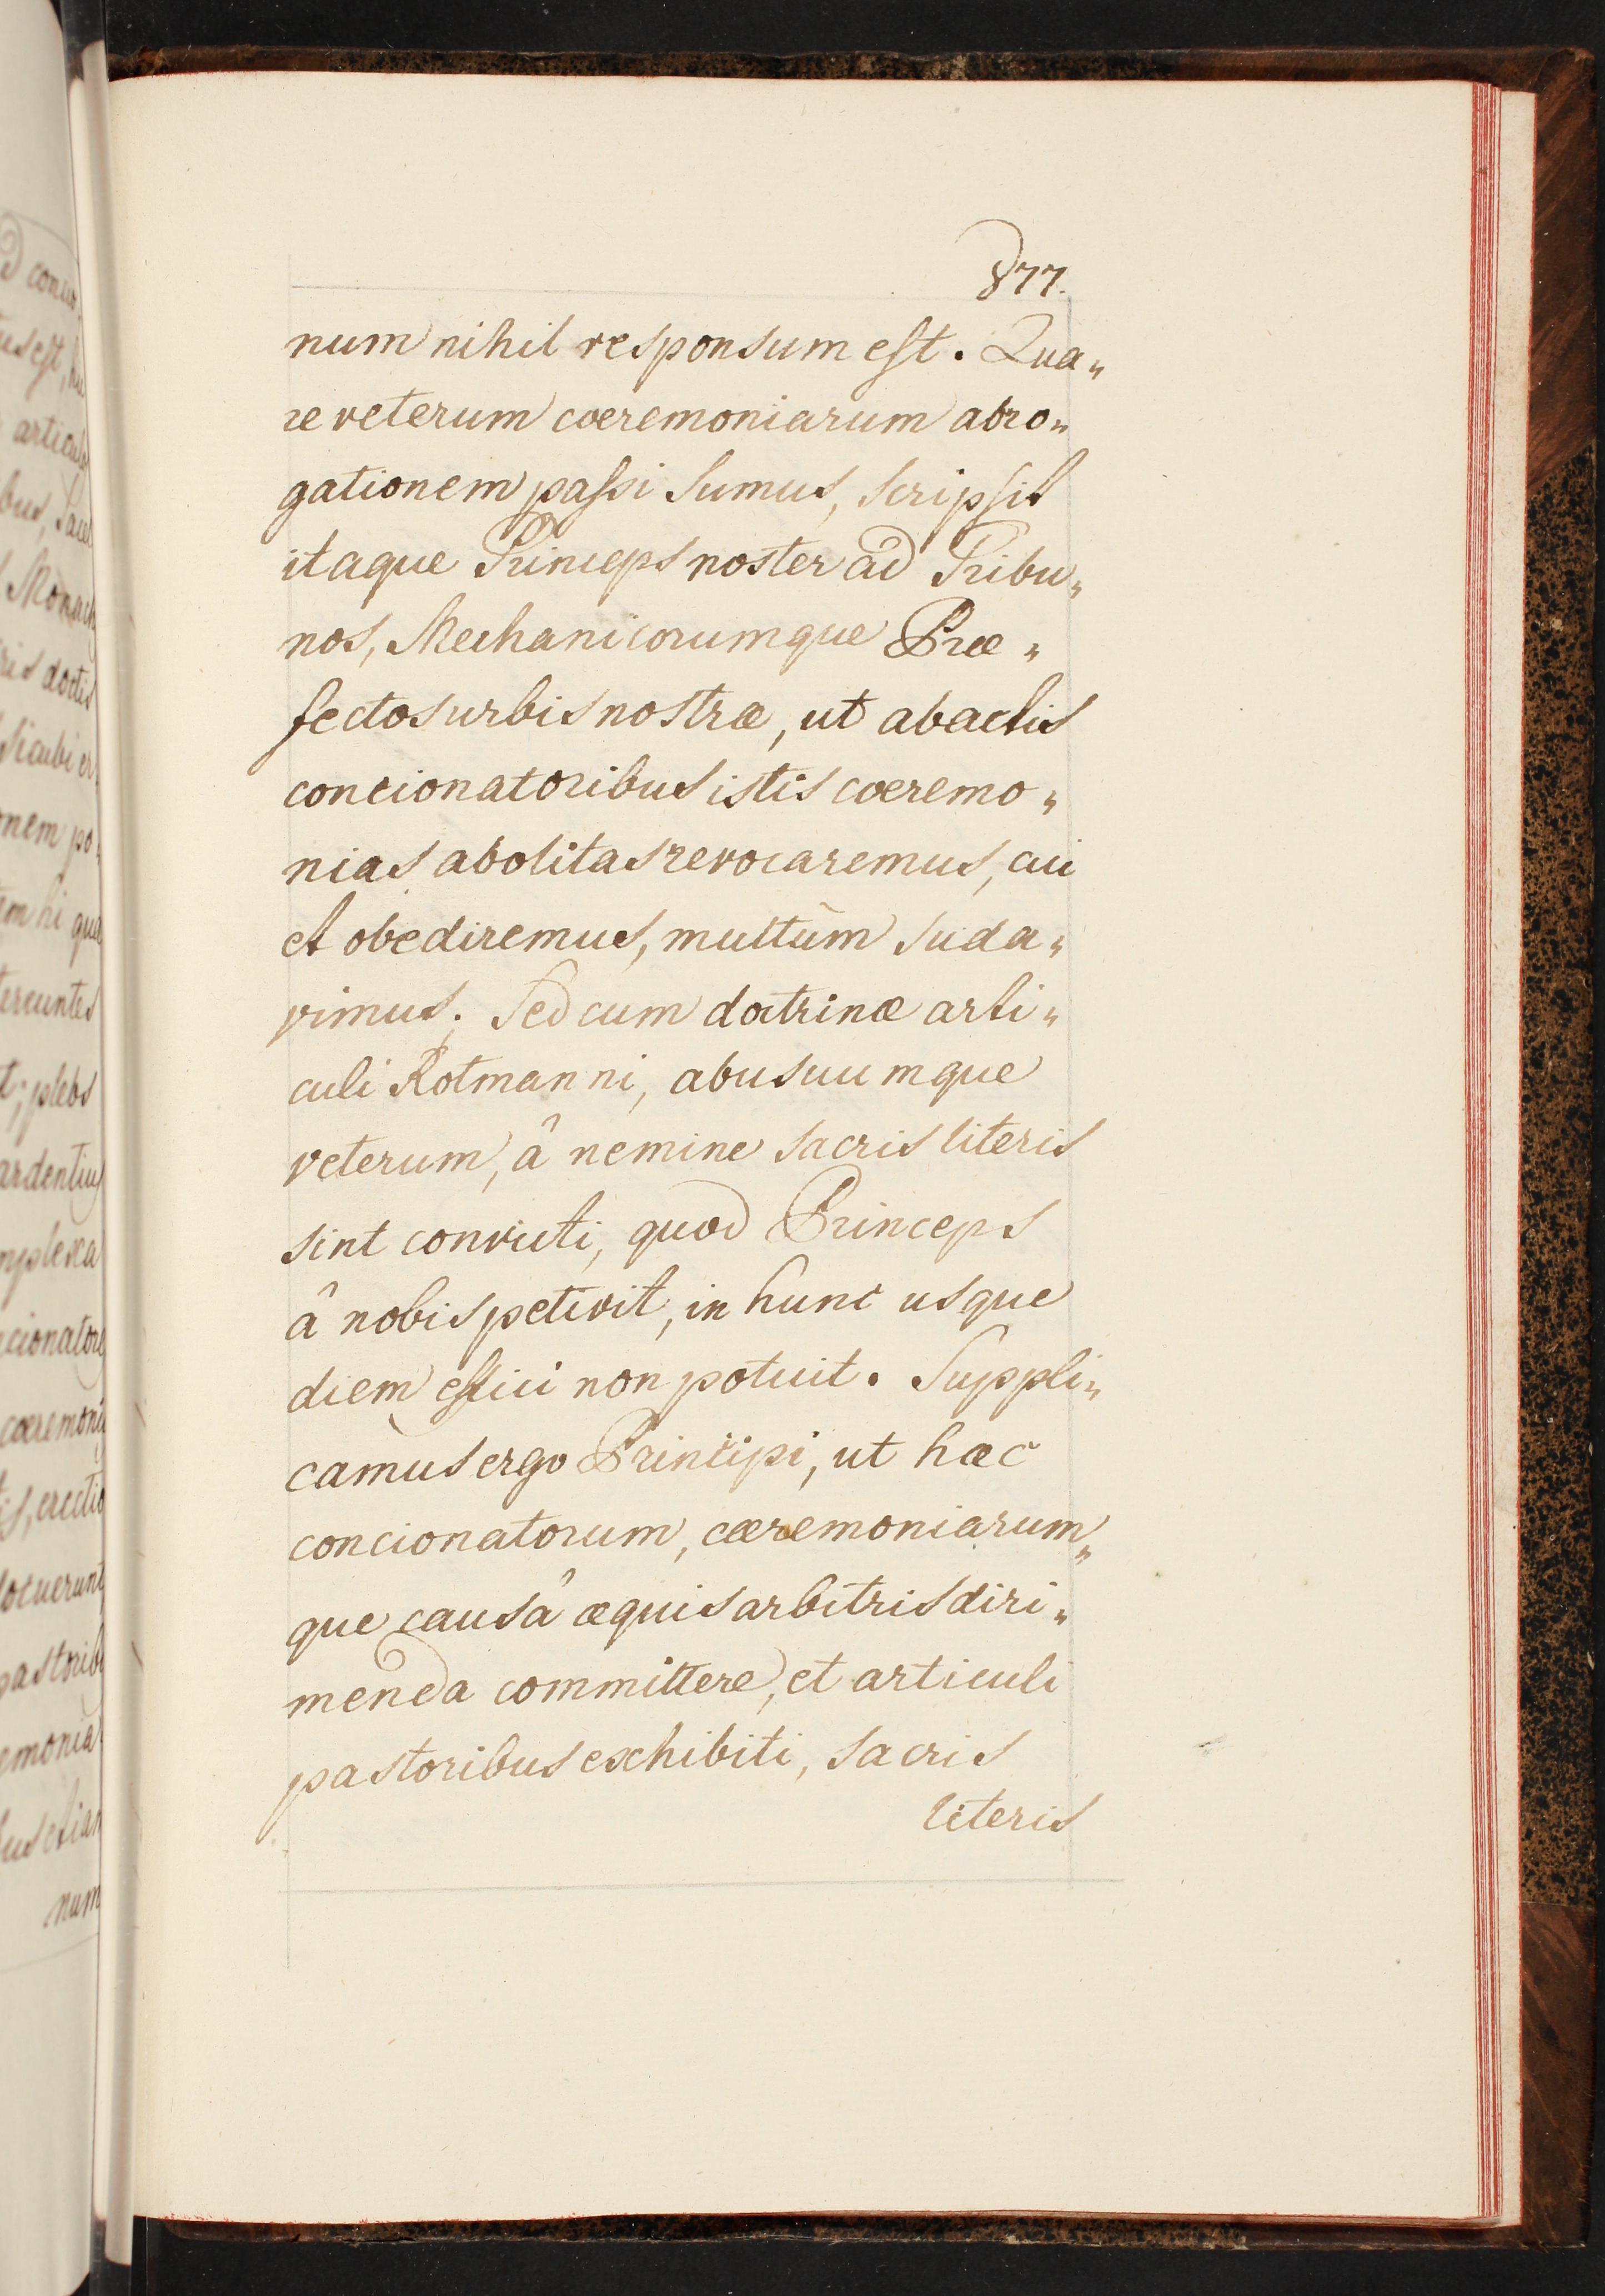 877.
num nihil responsum est. Qua„
re veterum coeremoniarum abro„
gationem passi sumus, scripsit
itaque Princeps noster ad Tribu„
nos, Mechanicorumque Prae„
fectos urbis nostrae, ut abactis
concionatoribus istis coeremo„
nias abolitas revocaremus, cui
et obediremus, multùm suda„
vimus; Sed cum doctrinae arti„
culi Rotmanni, abusuumque
veterum, â nemine sacris literis
sint convicti, quod Princeps
â nobis petivit, in hunc usque
diem effici non potuit. Suppli„
camus ergo Principi, ut haec
concionatorum, caeremoniarum„
que causâ aequis arbitris diri„
menda committere, et articuli
pastoribus exhibiti, sacris
literis